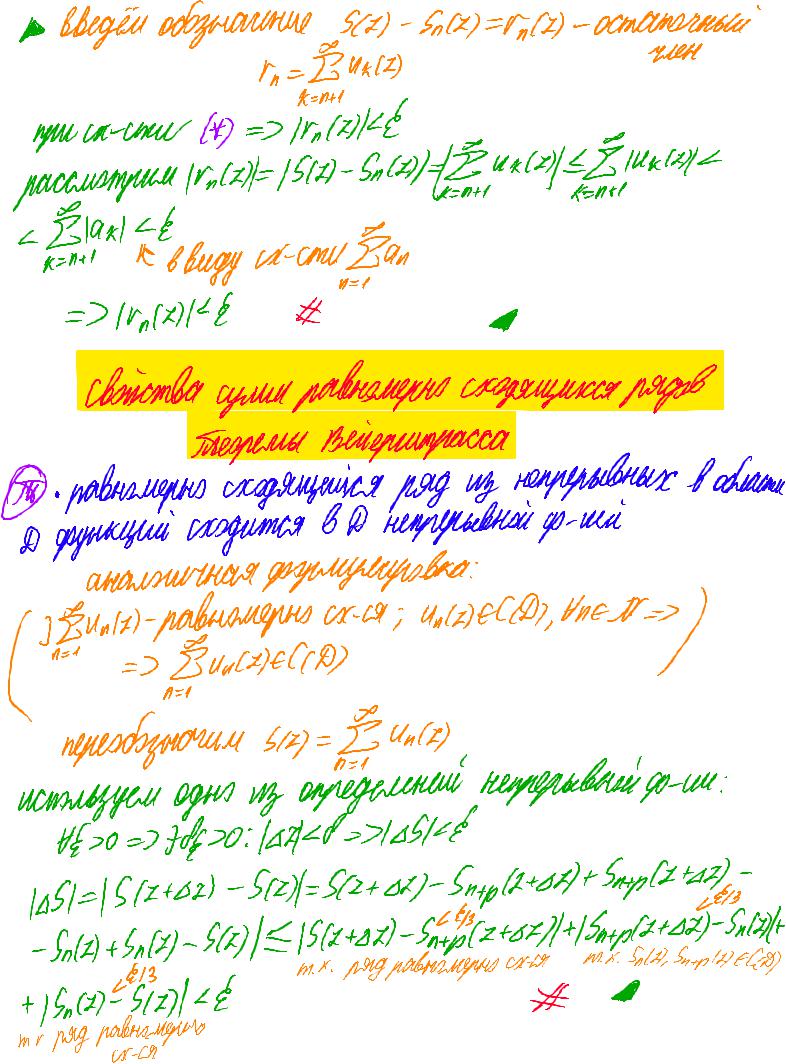 ▶ введём обозначение S(z) - Sn(z) = rn(z) - остаточный член
rn = ∑_{k=n+1}^∞ uk(z)
при сх-сти (*) => |rn(z)| < ε
рассмотрим |rn(z)| = |S(z) - Sn(z)| = |∑_{k=n+1}^∞ uk(z)| ≤ ∑_{k=n+1}^∞ |uk(z)| <
< ∑_{k=n+1}^∞ |ak| < ε
в виду сх-сти ∑_{n=1}^∞ an
=> |rn(z)| < ε #
свойства сумм равномерно сходящихся рядов
теоремы Вейерштрасса
Th • равномерно сходящейся ряд из непрерывных в области
D функций сходится в D непрерывной ф-ией
аналогичная формулировка:
] ∑_{n=1}^∞ un(z) - равномерно сх-ся; un(z) ∈ C(D), ∀n ∈ N =>
=> ∑_{n=1}^∞ un(z) ∈ C(D)
переобзночим S(z) = ∑_{n=1}^∞ un(z)
используем одно из определений непрерывной ф-ии:
∀ε > 0 => ∃δε > 0: |Δz| < δ => |ΔS| < ε
|ΔS| = |S(z+Δz) - S(z)| = S(z+Δz) - Sn+p(z+Δz) + Sn+p(z+Δz) -
- Sn(z) + Sn(z) - S(z)| ≤ |S(z+Δz) - Sn+p(z+Δz)| + |Sn+p(z+Δz) - Sn(z)| +
< ε/3 < ε/3
т.к. ряд равномерно сх-ся т.к. Sn(z), Sn+p(z) ∈ C(D)
+ |Sn(z) - S(z)| < ε #
< ε/3
тк ряд равномерно
сх-ся